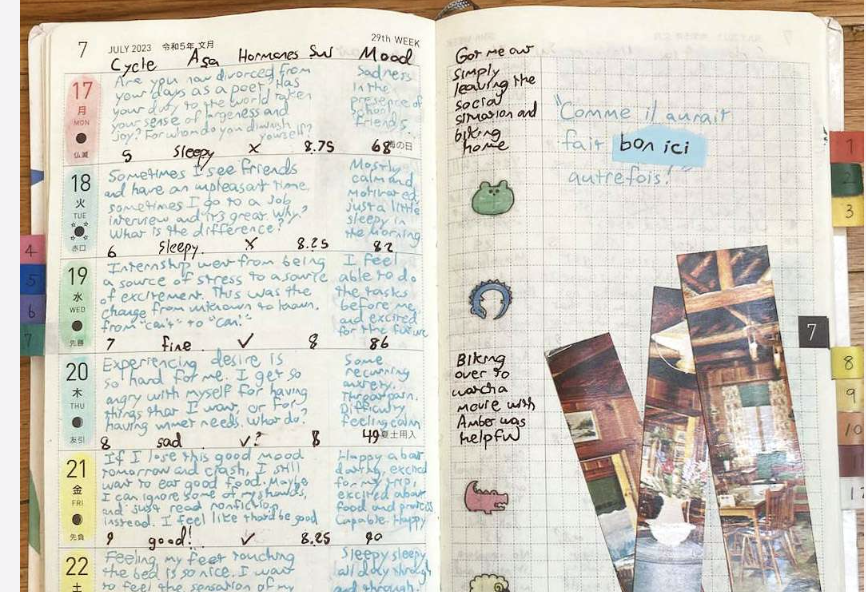 7 JULY 2023 令和5年 文月 29th WEEK
Cycle Asa Hormones Sun Mood
17
月
MON
仏滅
Are you now divorced from
your days as a poet? Has
your duty to the world taken
your sense of largeness and
joy? For whom do you diminish
yourself?
Sadness
in the
presence of
friends.
5 Sleepy x 8.75 68 海の日
18
火
TUE
赤口
Sometimes I see friends
and have an unpleasant time,
sometimes I go to a job
interview and it's great. Why?
What is the difference?
Mostly
calm and
motivated,
just a little
sleepy in
the morning
6 Sleepy. x 8.25 82
19
水
WED
先勝
Internship went from being
a source of stress to a source
of excitement. This was the
change from unknown to known,
from "can't" to "can."
I feel
able to do
the tasks
before me,
and excited
for the future
7 fine ✓ 8 86
20
木
THU
友引
Experiencing desire is
so hard for me. I get so
angry with myself for having
things that I want, or for
having unmet needs. What do?
Some
recurring
anxiety.
Throat pain.
Difficulty
feeling calm
8 sad ✓? 8 49 夏土用入
21
金
FRI
先負
If I lose this good mood
tomorrow and crash, I still
want to eat good food. Maybe
I can ignore some of my shows,
and just read nonfiction
instead. I feel like that'd be good
Happy about
dating, excited
for my trip,
excited about
food and
capable. Happy
9 good! ✓ 8.25 90
22
土
Feeling my feet touching
the bed is so nice. I want
to feel the sensation of my
Sleepy sleepy
all day through
and through.
Got me out
simply
leaving the
social
situation and
biking
home
"Comme il aurait
fait bon ici
autrefois!"
Biking
over to
watch a
movie with
Amber was
helpful
1
2
3
4
5
6
7
7
8
9
10